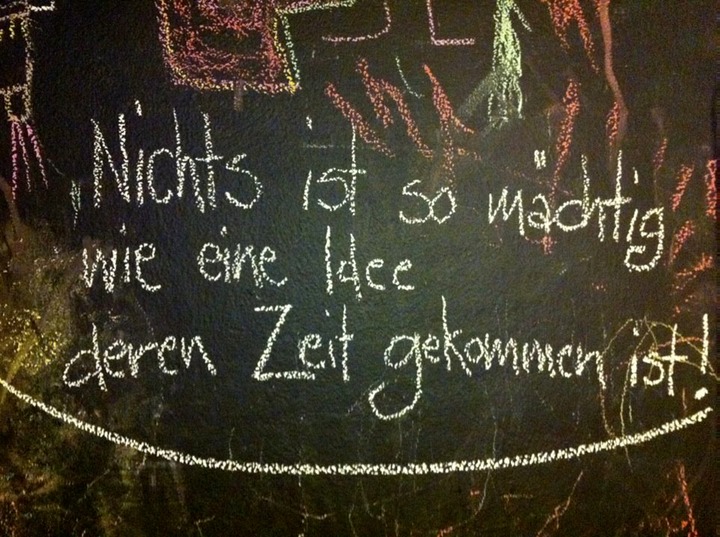 "Nichts ist so mächtig
wie eine Idee
deren Zeit gekommen ist!